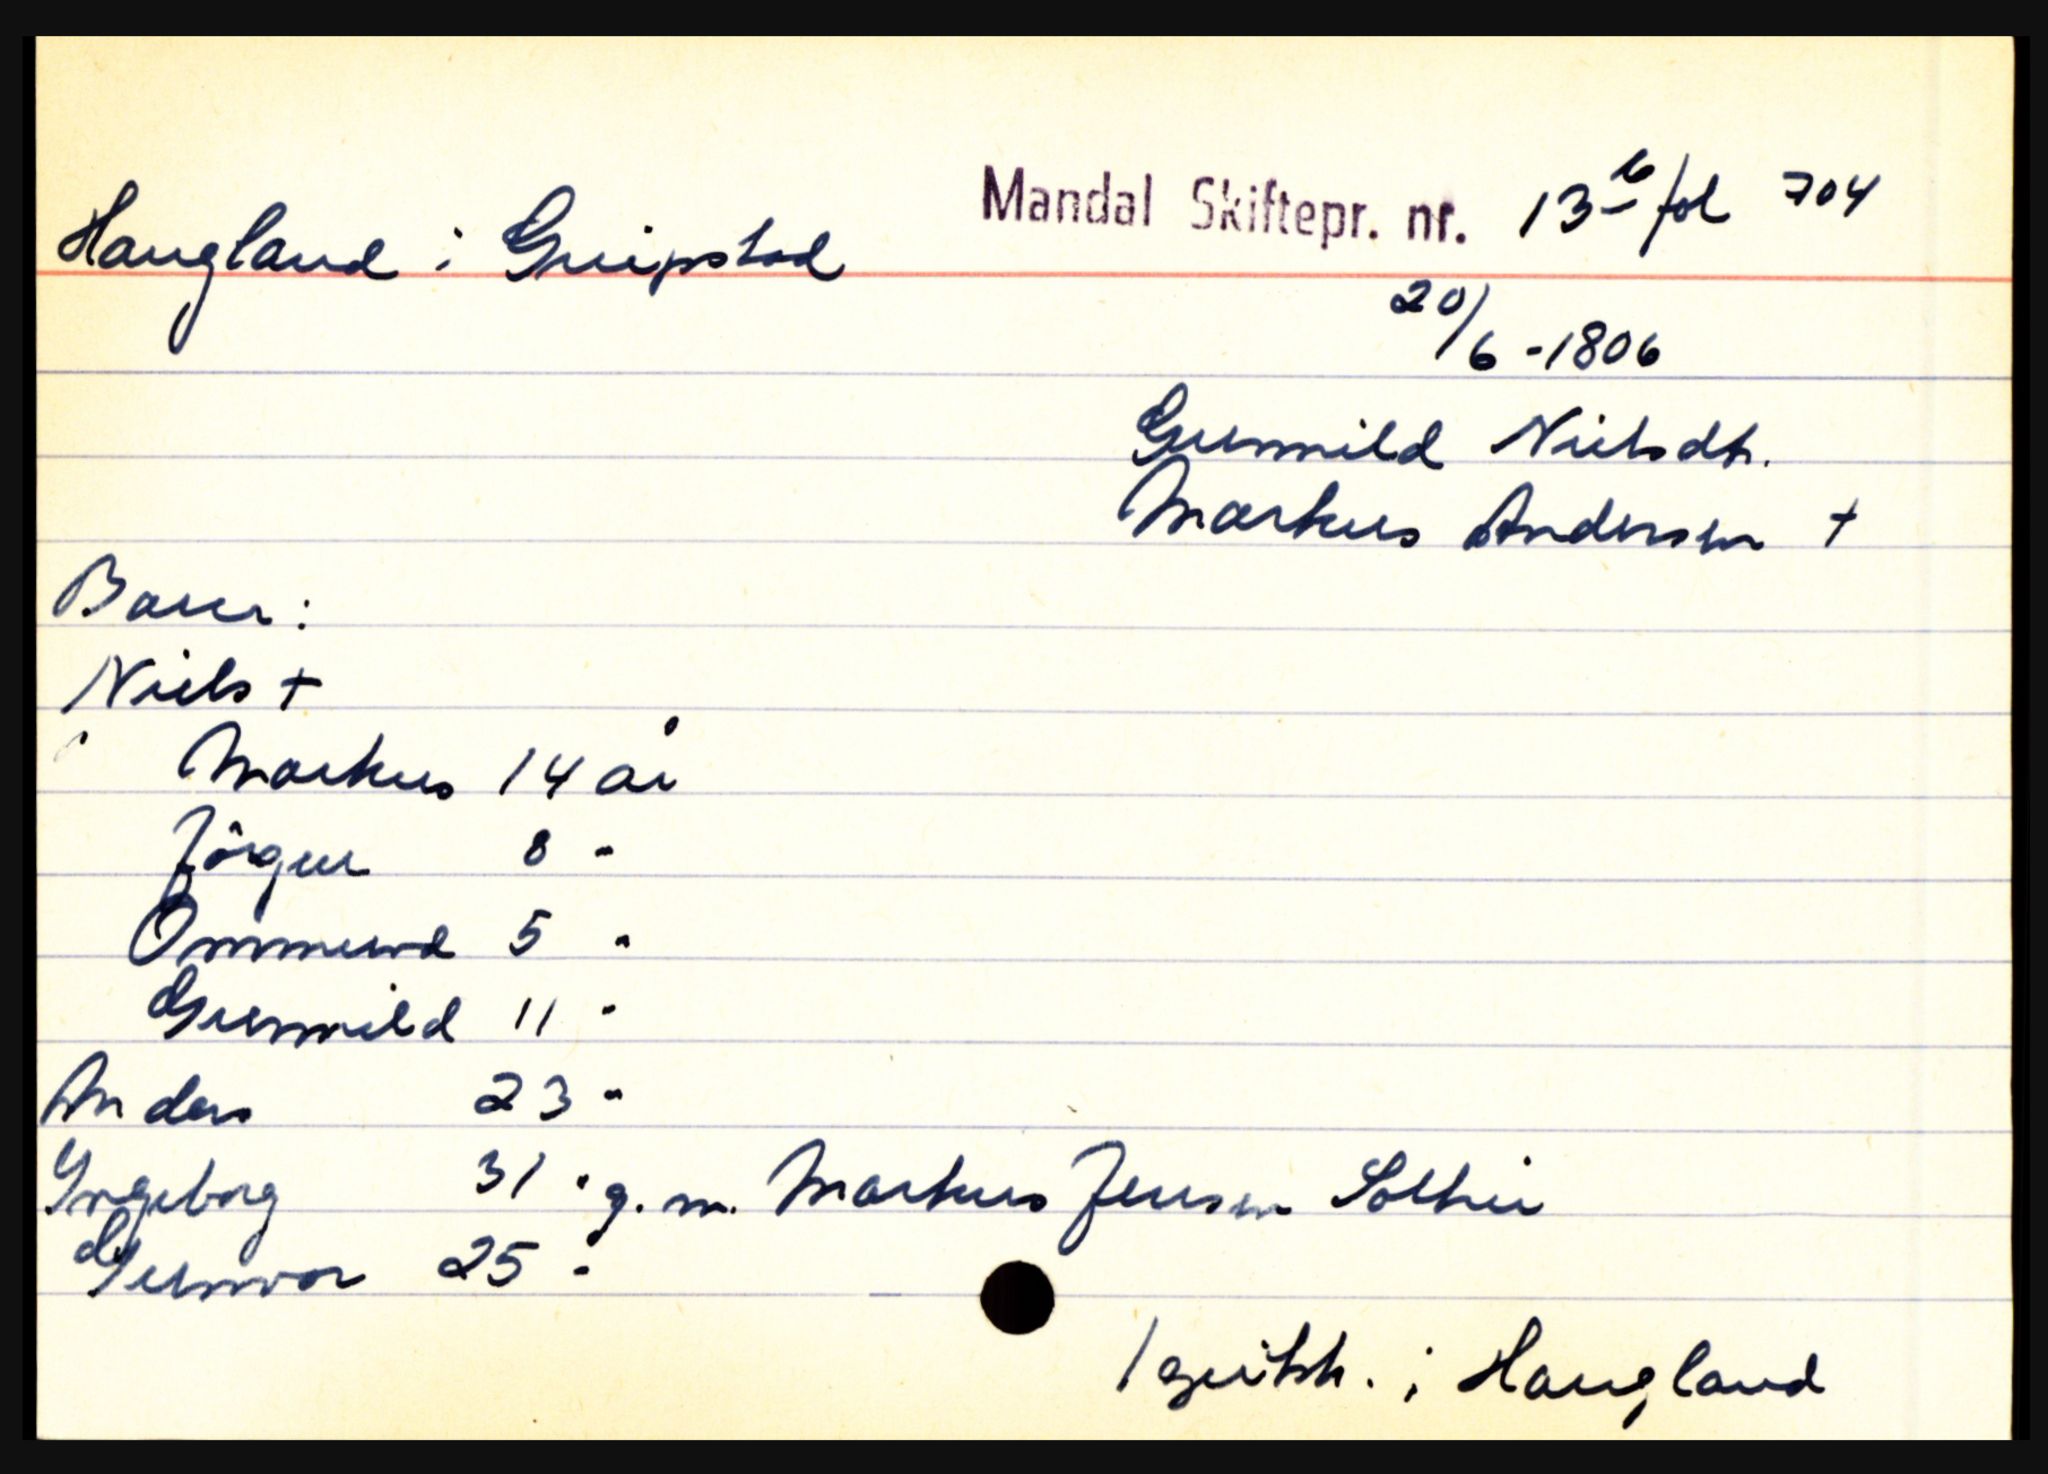 Haugland i Greipstad
Mandal Skiftepr. nr. 13 b fol 704
20/6 -1806
Gunnild Nielsdtr.
Markus Andersen +
Barn:
Niels +
Markus 14 år
Jörgen 8 "
Ommund 5 "
Gunnild 11 "
Anders 23 "
Ingeborg 31 " g. m. Markus Jensen
Gunvor 25 "
1 i Haugland